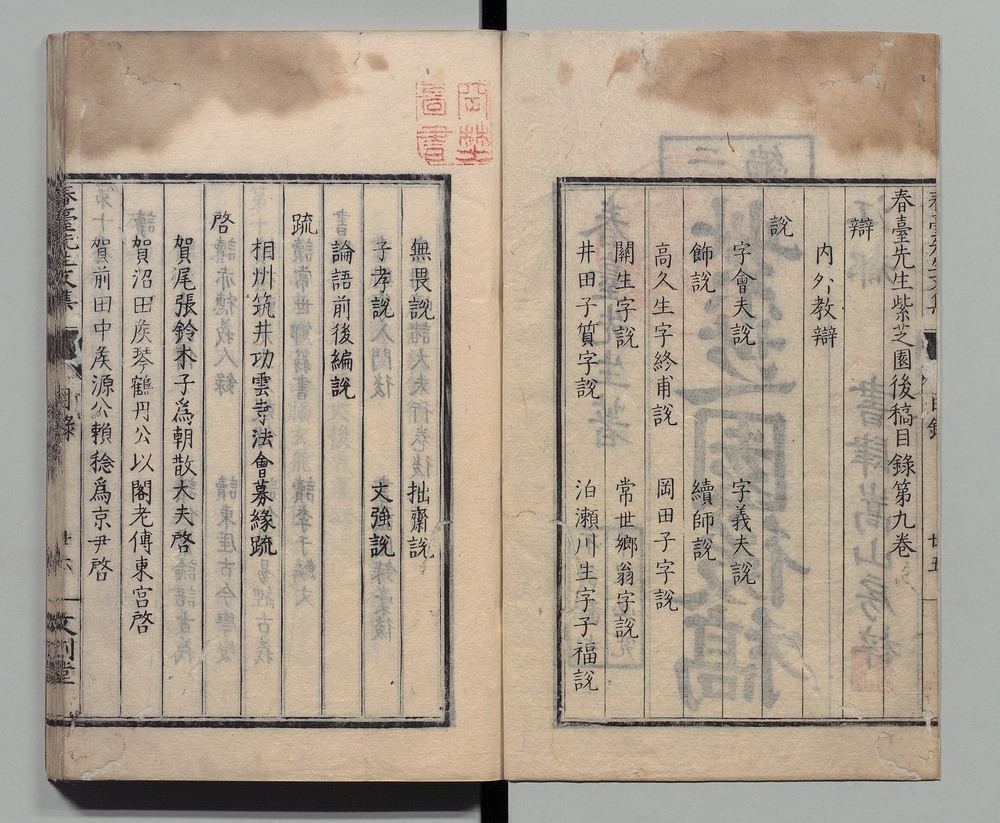 春臺先生紫芝園後稿目錄第九卷
辯
內外教辯
說
字會夫說 字義夫說
飾說 續師說
高久生字終甫說 岡田子字說
關生字說 常世鄉翁字說
井田子質字說 泊瀨川生字子福說
無畏說 拙齋說
子孝說 丈強說
論語前後編說
疏
相州筑井功雲寺法會募緣疏
啓
賀尾張鈴木子為朝散大夫啓
賀沼田矦琴鶴丹公以閣老傳東宮啓
賀前田中矦源公賴稔為京尹啓
春臺先生文集
目錄
廿六